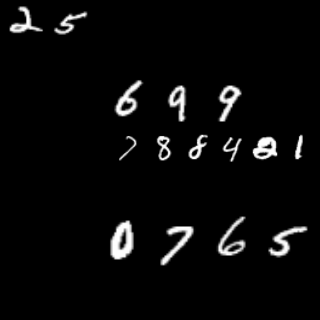 25
699
788421
0765